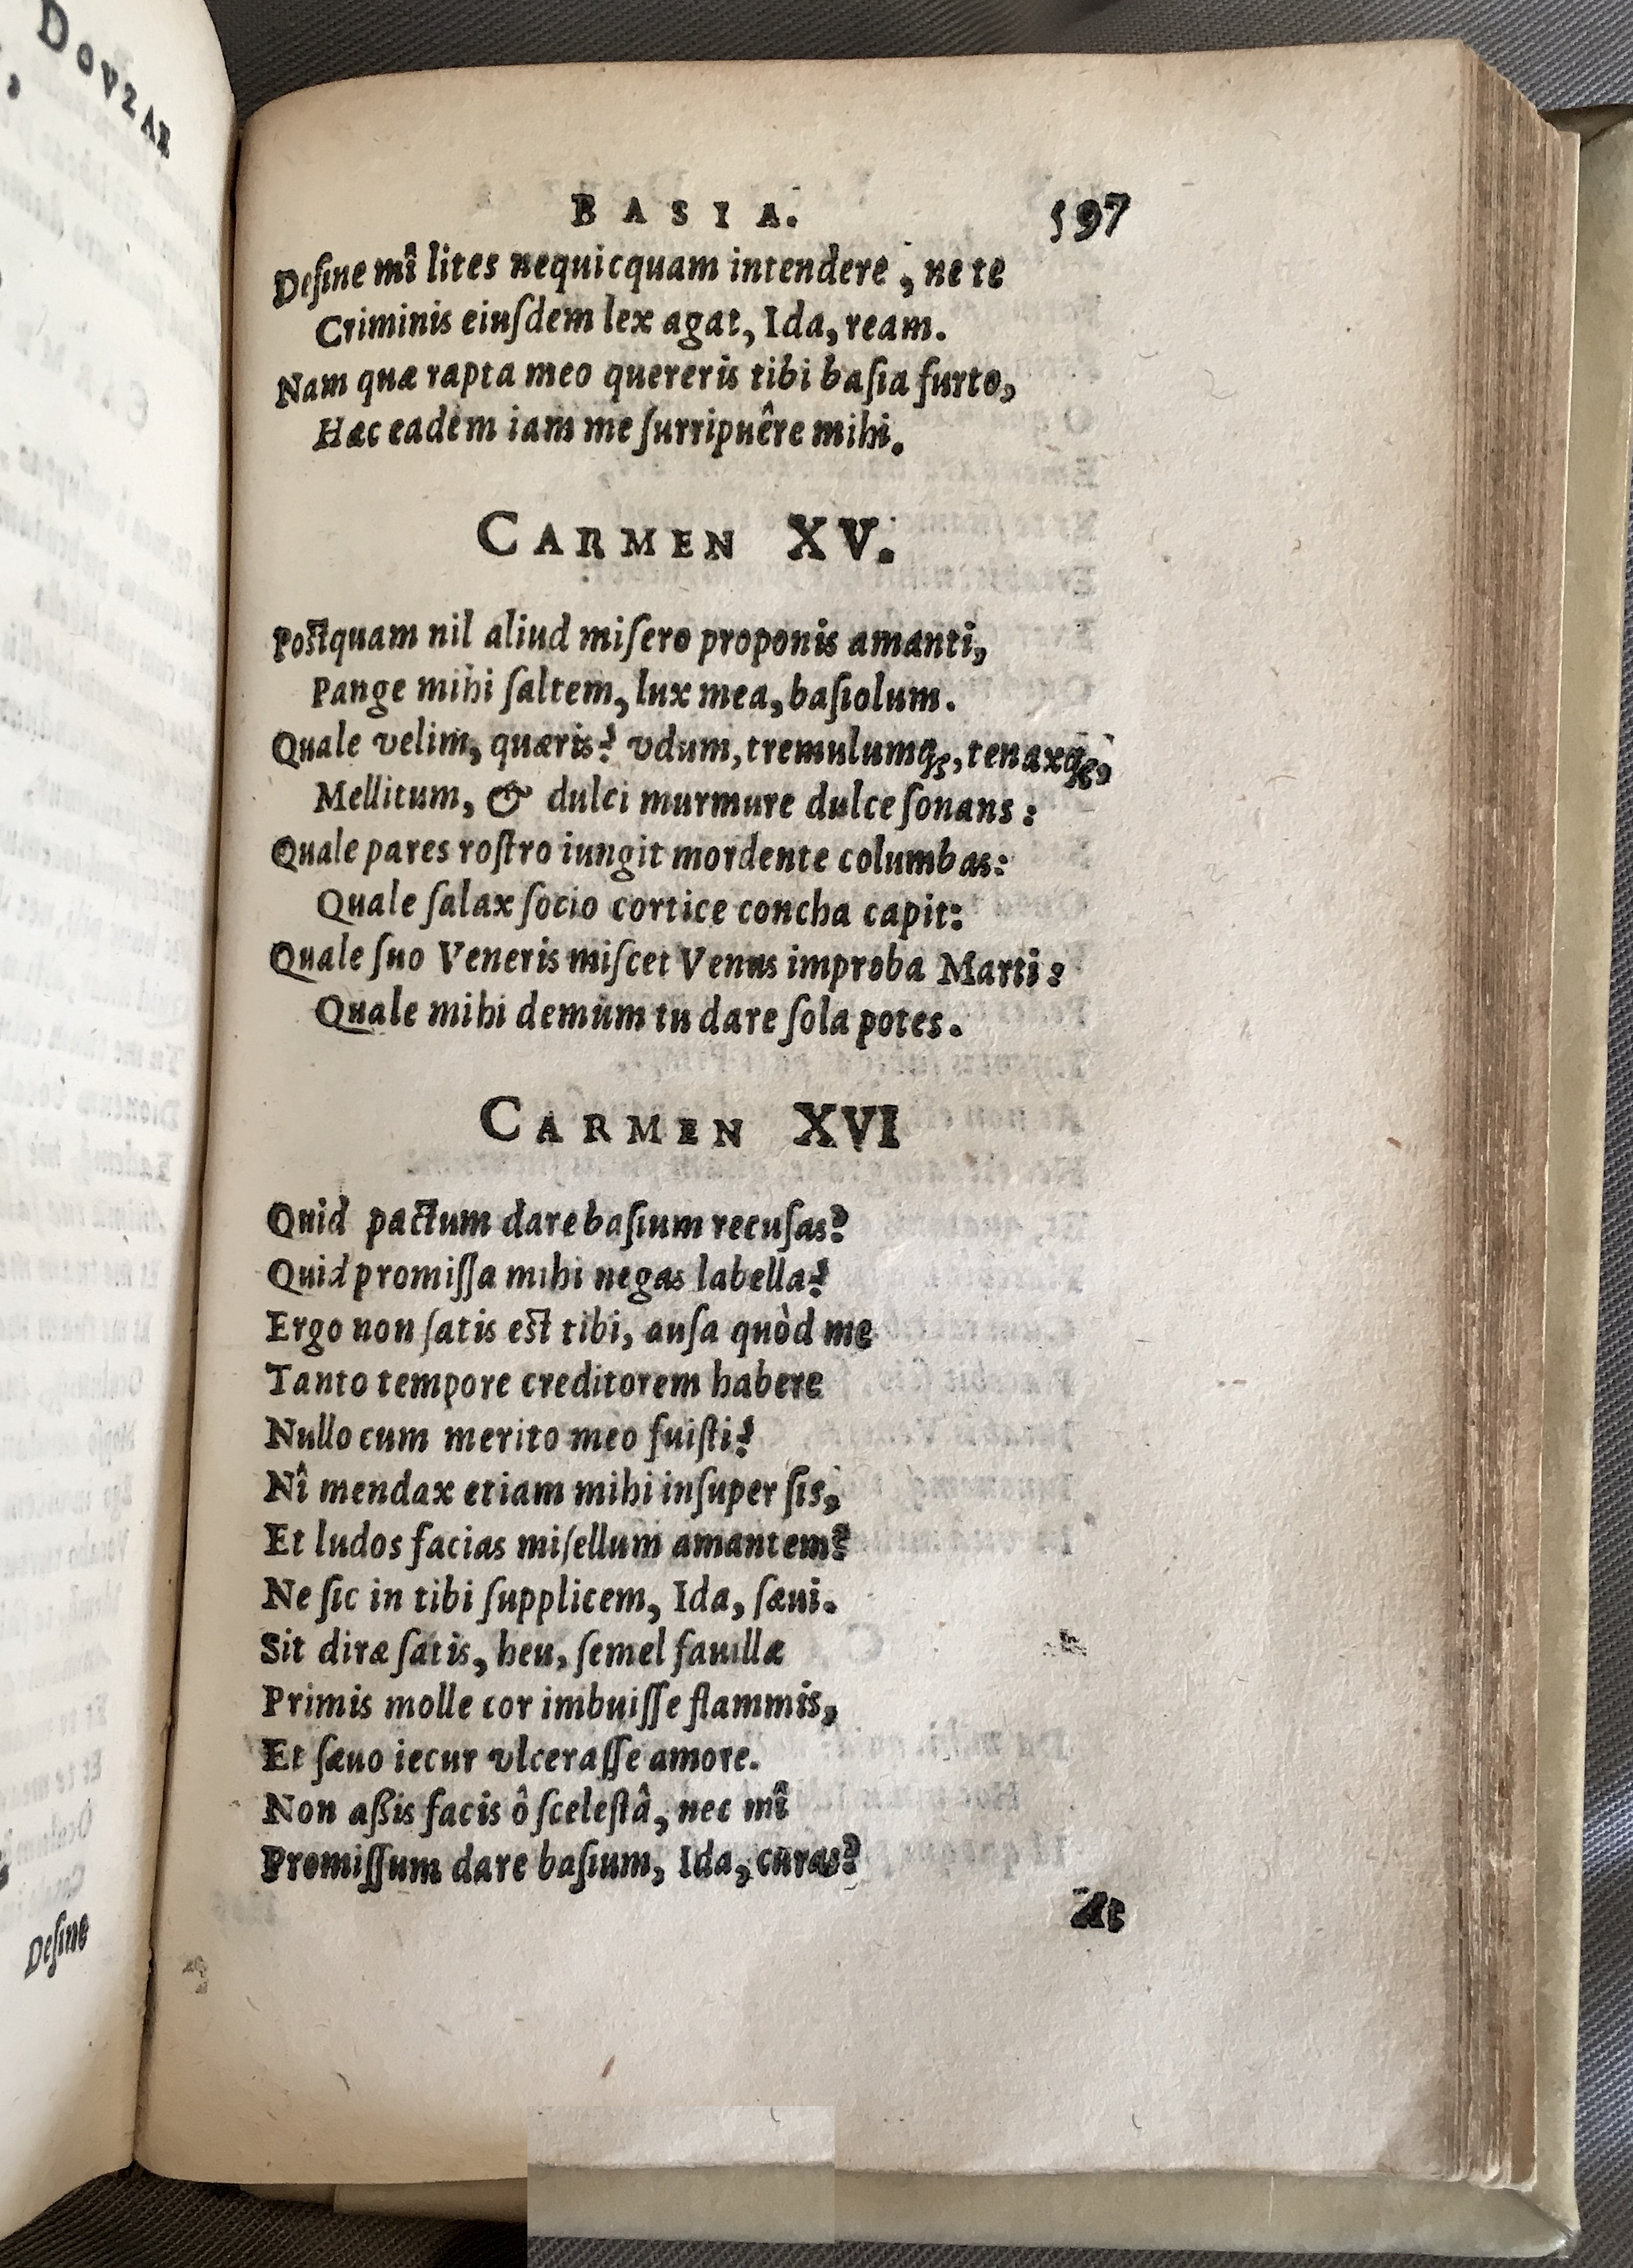 DOVZAE
BASIA. 597
Deſine mî lites nequicquam intendere, ne te
Criminis eiuſdem lex agat, Ida, ream.
Nam quæ rapta meo quereris tibi baſia furto,
Hæc eadem iam me ſurripuêre mihi.
CARMEN XV.
Poſtquam nil aliud miſero proponis amanti,
Pange mihi ſaltem, lux mea, baſiolum.
Quale velim, quæris? vdum, tremulumq;, tenaxq;,
Mellitum, & dulci murmure dulce ſonans:
Quale pares roſtro iungit mordente columbas:
Quale ſalax ſocio cortice concha capit:
Quale ſuo Veneris miſcet Venus improba Marti:
Quale mihi demum tu dare ſola potes.
CARMEN XVI
Quid pactum dare baſium recuſas?
Quid promiſſa mihi negas labella?
Ergo non ſatis eſt tibi, auſa quòd me
Tanto tempore creditorem habere
Nullo cum merito meo fuiſti?
Nî mendax etiam mihi inſuper ſis,
Et ludos facias miſellum amantem?
Ne ſic in tibi ſupplicem, Ida, ſæui.
Sit diræ ſatis, heu, ſemel fauillæ
Primis molle cor imbuiſſe flammis,
Et ſæuo iecur vlceraſſe amore.
Non aßis facis ô ſceleſtâ, nec mî
Promiſſum dare baſium, Ida, curas?
At
Deſine